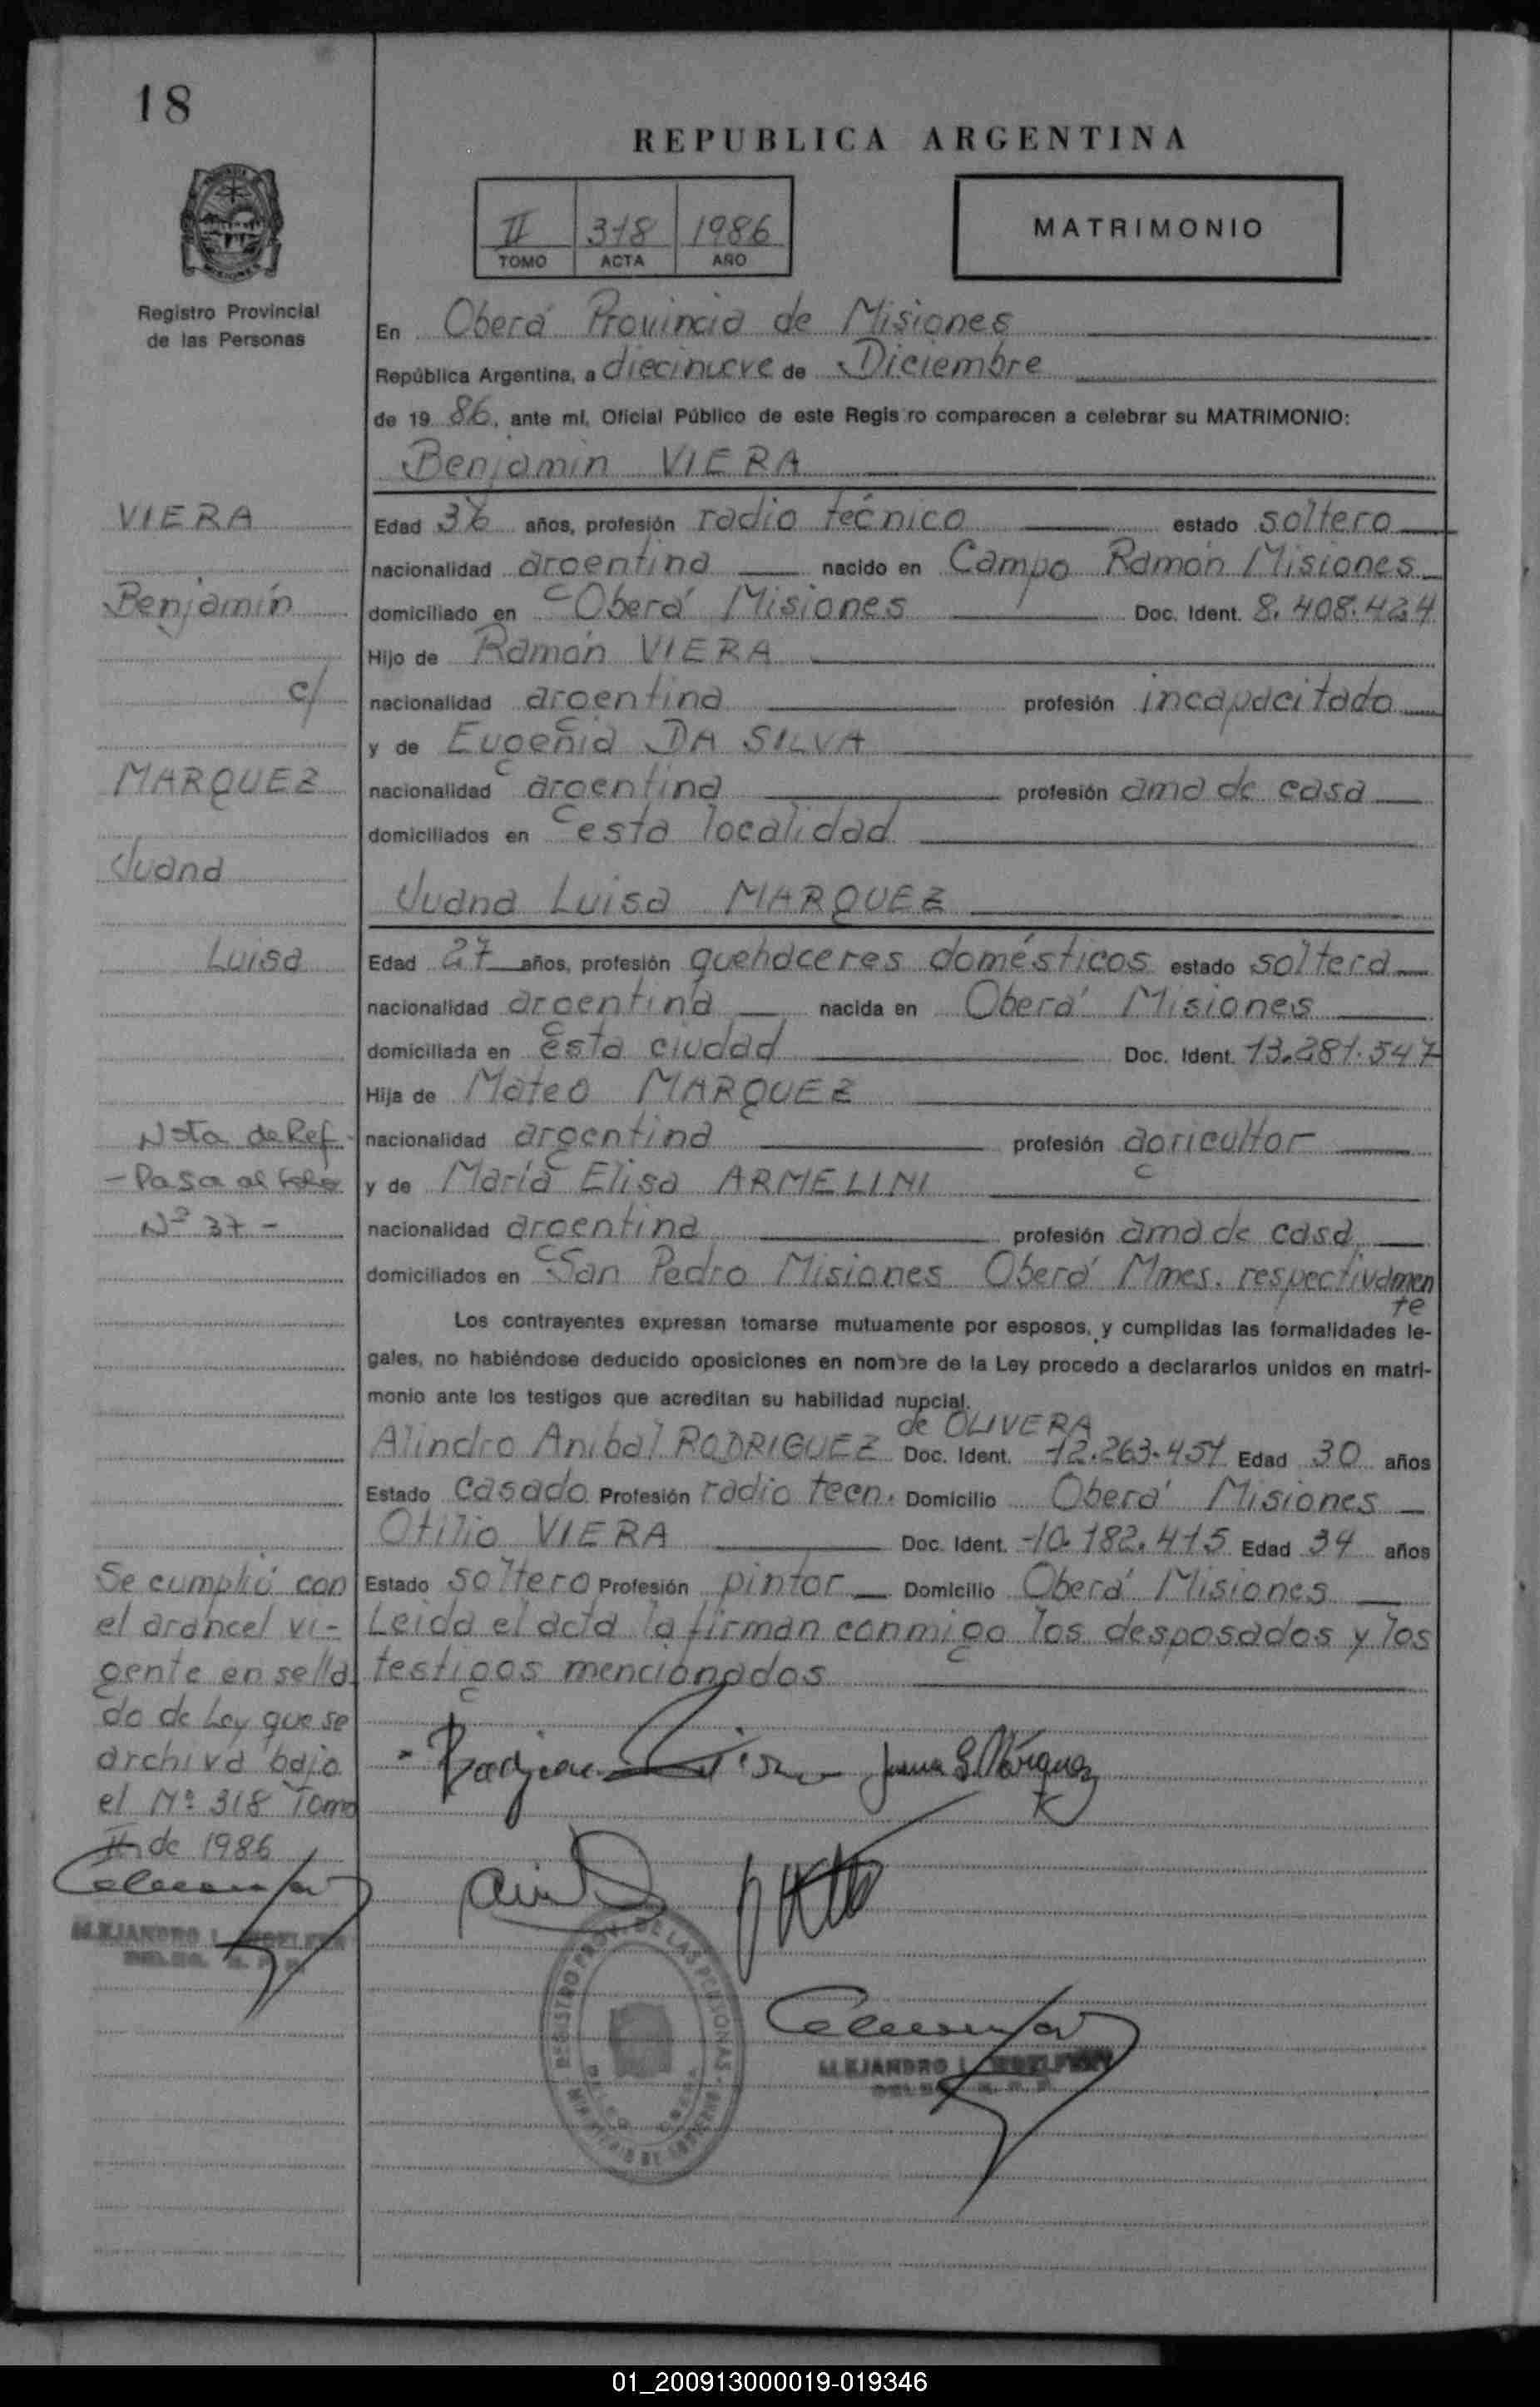 18
REPUBLICA ARGENTINA
II 318 1986
TOMO ACTA AÑO
MATRIMONIO
Registro Provincial
de las Personas
En Oberá Provincia de Misiones
República Argentina, a diecinueve de Diciembre
de 19 86, ante mí, Oficial Público de este Registro comparecen a celebrar su MATRIMONIO:
Benjamín VIERA
VIERA
Edad 36 años, profesión radio técnico estado soltero
nacionalidad argentina nacido en Campo Ramón Misiones
Benjamín
domiciliado en Oberá Misiones Doc. Ident. 8.408.424
Hijo de Ramón VIERA
c/
nacionalidad argentina profesión incapacitado
y de Eugenia DA SILVA
MARQUEZ
nacionalidad argentina profesión ama de casa
domiciliados en esta localidad
Juana
Juana Luisa MARQUEZ
Luisa
Edad 27 años, profesión quehaceres domésticos estado soltera
nacionalidad argentina nacida en Oberá Misiones
domiciliada en esta ciudad Doc. Ident. 13.281.547
Hija de Mateo MARQUEZ
Nota de Ref.
nacionalidad argentina profesión agricultor
- Pasa al folio
y de María Elisa ARMELINI
Nº 37 -
nacionalidad argentina profesión ama de casa
domiciliados en San Pedro Misiones Oberá Mnes. respectivamen
te
Los contrayentes expresan tomarse mutuamente por esposos, y cumplidas las formalidades le-
gales, no habiéndose deducido oposiciones en nombre de la Ley procedo a declararlos unidos en matri-
monio ante los testigos que acreditan su habilidad nupcial.
de OLIVERA
Alindro Anibal RODRIGUEZ Doc. Ident. 12.263.451 Edad 30 años
Estado casado Profesión radio tecn. Domicilio Oberá Misiones
Otilio VIERA Doc. Ident. 10.182.415 Edad 34 años
Estado soltero Profesión pintor Domicilio Oberá Misiones
Leida el acta la firman conmigo los desposados y los
testigos mencionados
Se cumplió con
el arancel vi-
gente en sella
do de Ley que se
archiva bajo
el Nº 318 Tomo
II de 1986
Juana L. Márquez
ALEJANDRO L.
REGISTRO PROV. DE LAS PERSONAS
ALEJANDRO L.
01_200913000019-019346